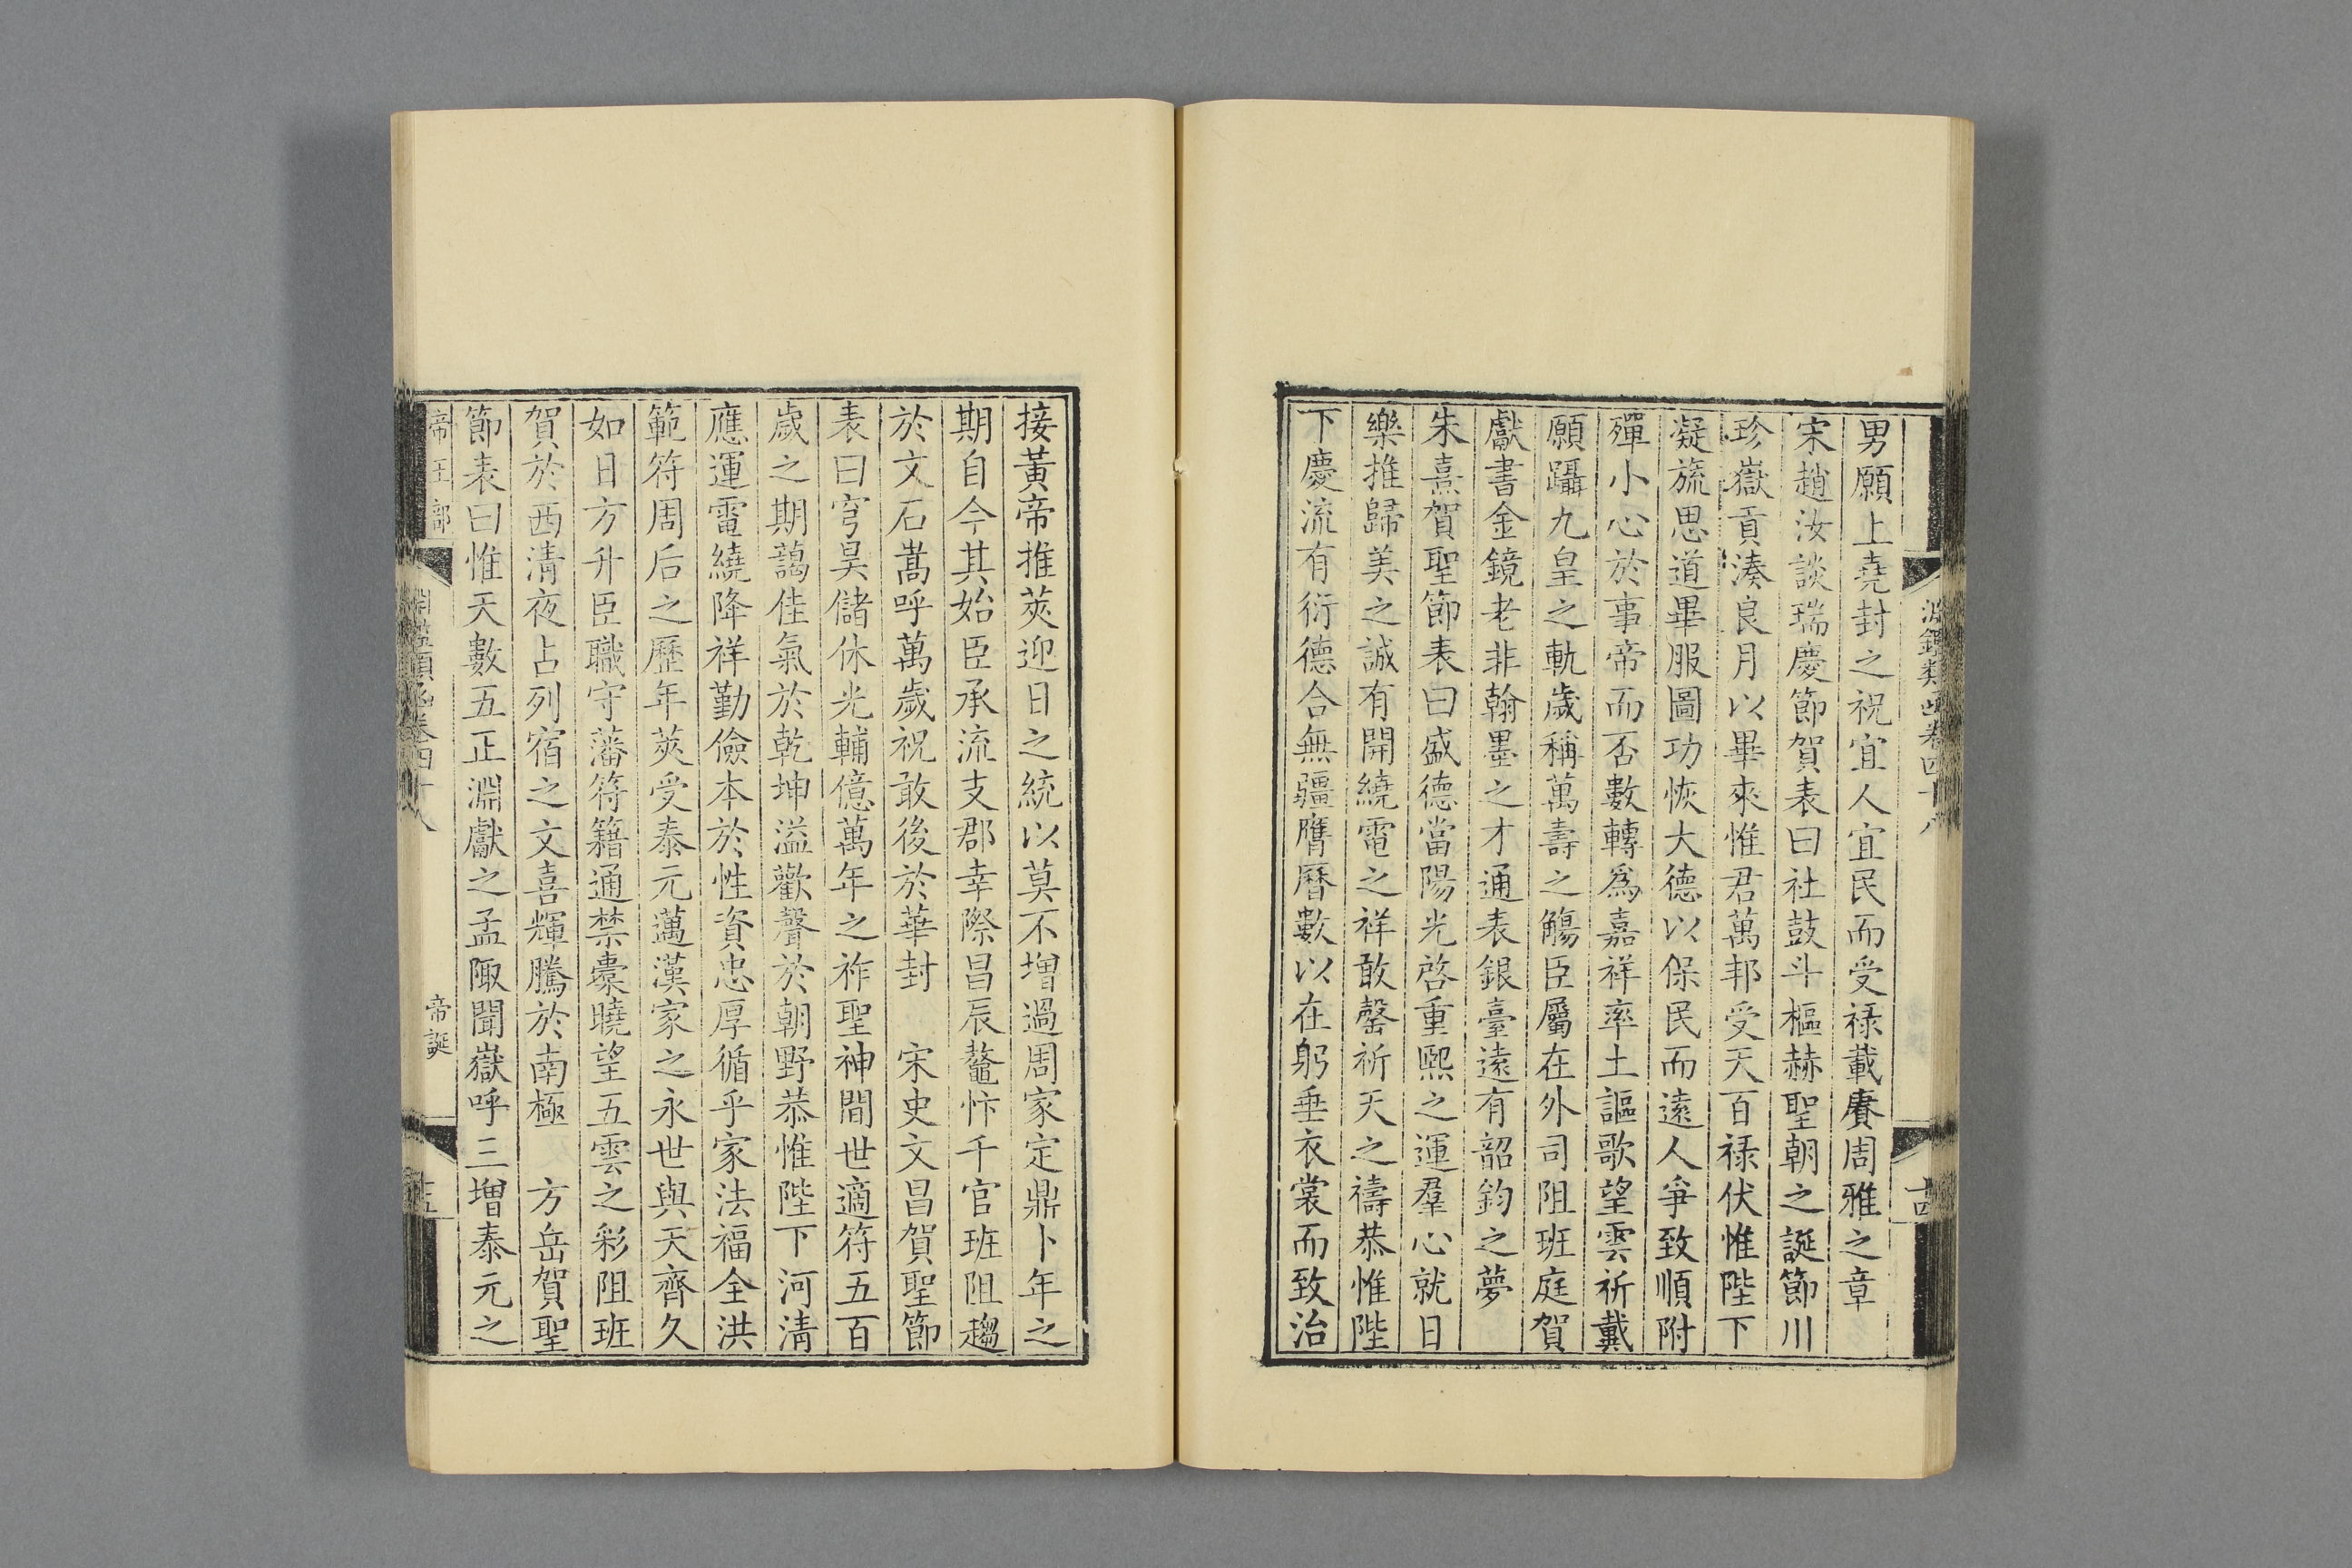 淵鑑類函卷四十八
十四
男願上堯封之祝宜人宜民而受祿載賡周雅之章
宋趙汝談瑞慶節賀表曰社鼓斗樞赫聖朝之誕節川
珍嶽貢湊良月以畢來惟君萬邦受天百祿伏惟陛下
凝旒思道畢服圖功恢大德以保民而遠人爭致順附
殫小心於事帝而否數轉爲嘉祥率土謳歌望雲祈戴
願躡九皇之軌歲稱萬壽之觴臣屬在外司阻班庭賀
獻書金鏡老非翰墨之才通表銀臺遠有韶鈞之夢
朱熹賀聖節表曰盛德當陽光啓重熙之運羣心就日
樂推歸美之誠有開繞電之祥敢罄祈天之禱恭惟陛
下慶流有衍德合無疆膺曆數以在躬垂衣裳而致治
接黃帝推莢迎日之統以莫不增過周家定鼎卜年之
期自今其始臣承流支郡幸際昌辰鼇忭千官班阻趨
於文石嵩呼萬歲祝敢後於華封 宋史文昌賀聖節
表曰穹昊儲休光輔億萬年之祚聖神間世適符五百
歲之期藹佳氣於乾坤溢歡聲於朝野恭惟陛下河清
應運電繞降祥勤儉本於性資忠厚循乎家法福全洪
範符周后之歷年莢受泰元邁漢家之永世與天齊久
如日方升臣職守藩符籍通禁橐曉望五雲之彩阻班
賀於西清夜占列宿之文喜輝騰於南極 方岳賀聖
節表曰惟天數五正淵獻之孟陬聞嶽呼三增泰元之
帝王部
淵鑑類函卷四十八
帝誕
十五